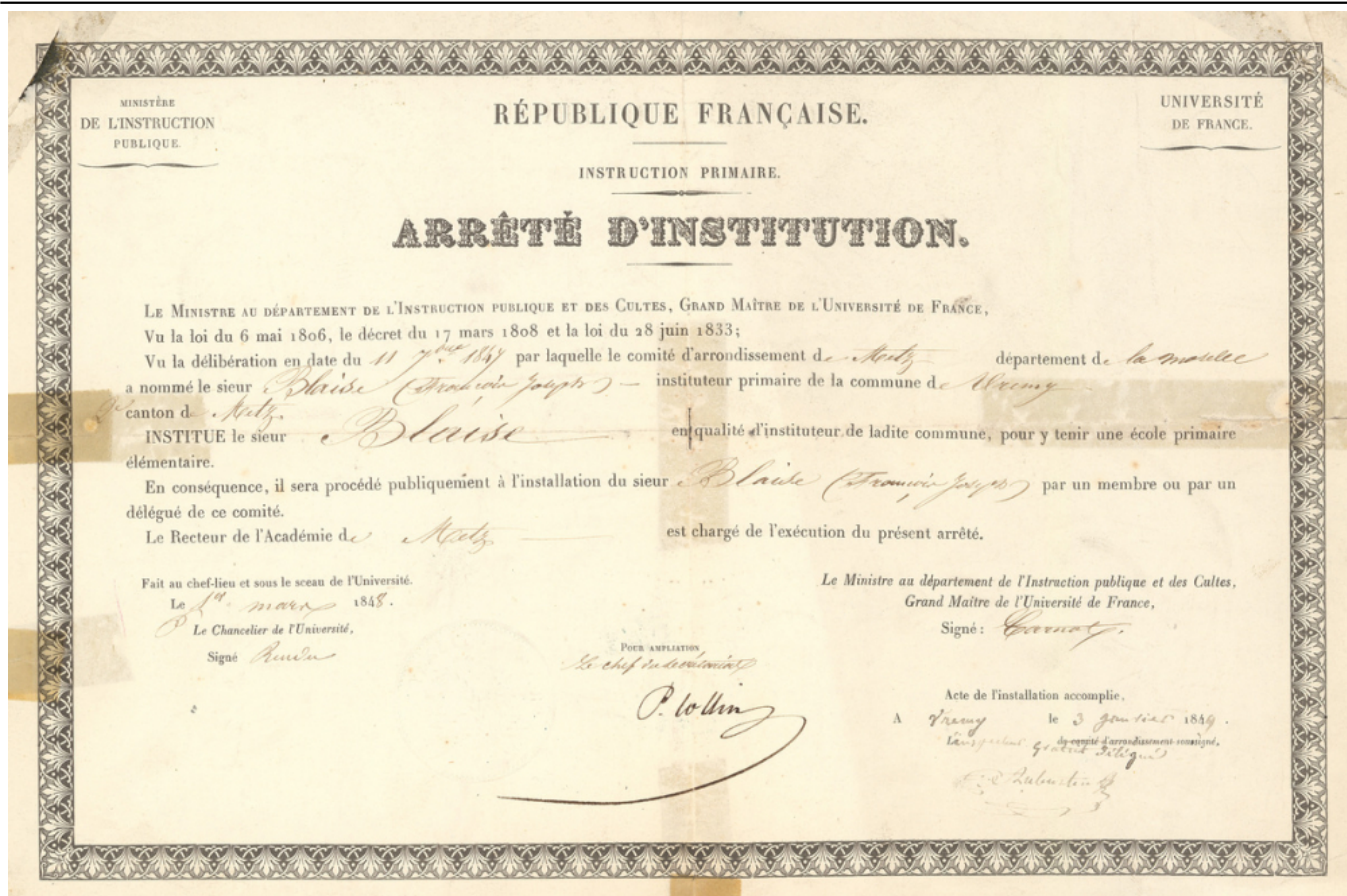 MINISTÈRE
DE L'INSTRUCTION
PUBLIQUE.
RÉPUBLIQUE FRANÇAISE.
UNIVERSITÉ
DE FRANCE.
INSTRUCTION PRIMAIRE.
ARRÊTÉ D'INSTITUTION.
Le Ministre au département de l'Instruction publique et des Cultes, Grand Maître de l'Université de France,
Vu la loi du 6 mai 1806, le décret du 17 mars 1808 et la loi du 28 juin 1833;
Vu la délibération en date du 11 7bre 1847 par laquelle le comité d'arrondissement de Metz département de la moselle
a nommé le sieur Blaise (François Joseph) — instituteur primaire de la commune de Vremy
canton de Metz.
INSTITUE le sieur Blaise en qualité d'instituteur de ladite commune, pour y tenir une école primaire
élémentaire.
En conséquence, il sera procédé publiquement à l'installation du sieur Blaise (François Joseph) par un membre ou par un
délégué de ce comité.
Le Recteur de l'Académie de Metz est chargé de l'exécution du présent arrêté.
Fait au chef-lieu et sous le sceau de l'Université.
Le 1er mars 1848.
Le Chancelier de l'Université,
Signé Rendu
Pour ampliation
Le chef du secrétariat
P. Collin
Le Ministre au département de l'Instruction publique et des Cultes,
Grand Maître de l'Université de France,
Signé : Carnot.
Acte de l'installation accomplie,
A Vremy le 3 janvier 1849.
L'inspecteur gratuit délégué du comité d'arrondissement soussigné,